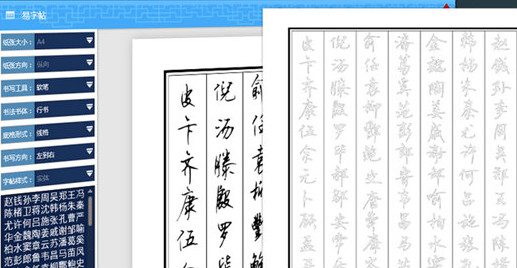 易字帖
纸张大小： A4
纸张方向： 纵向
书写工具： 软笔
书法书体： 行书
底格形式： 线格
书写方向： 左到右
字帖样式： 实体
赵钱孙李周吴郑王冯
陈褚卫蒋沈韩杨朱秦
尤许何吕施张孔曹严
华金魏陶姜戚谢邹喻
柏水窦章云苏潘葛奚
范彭郎鲁韦昌马苗凤
皮卞齐康伍
倪汤滕殷罗毕
俞任袁柳酆鲍
皮卞齐康伍余元卜顾孟
倪汤滕殷罗毕郝邬安常
俞任袁柳酆鲍史唐费廉
潘葛奚范彭郎鲁韦昌马
金魏陶姜戚谢邹喻柏水窦
韩杨朱秦尤许何吕施张孔
赵钱孙李周吴郑王冯